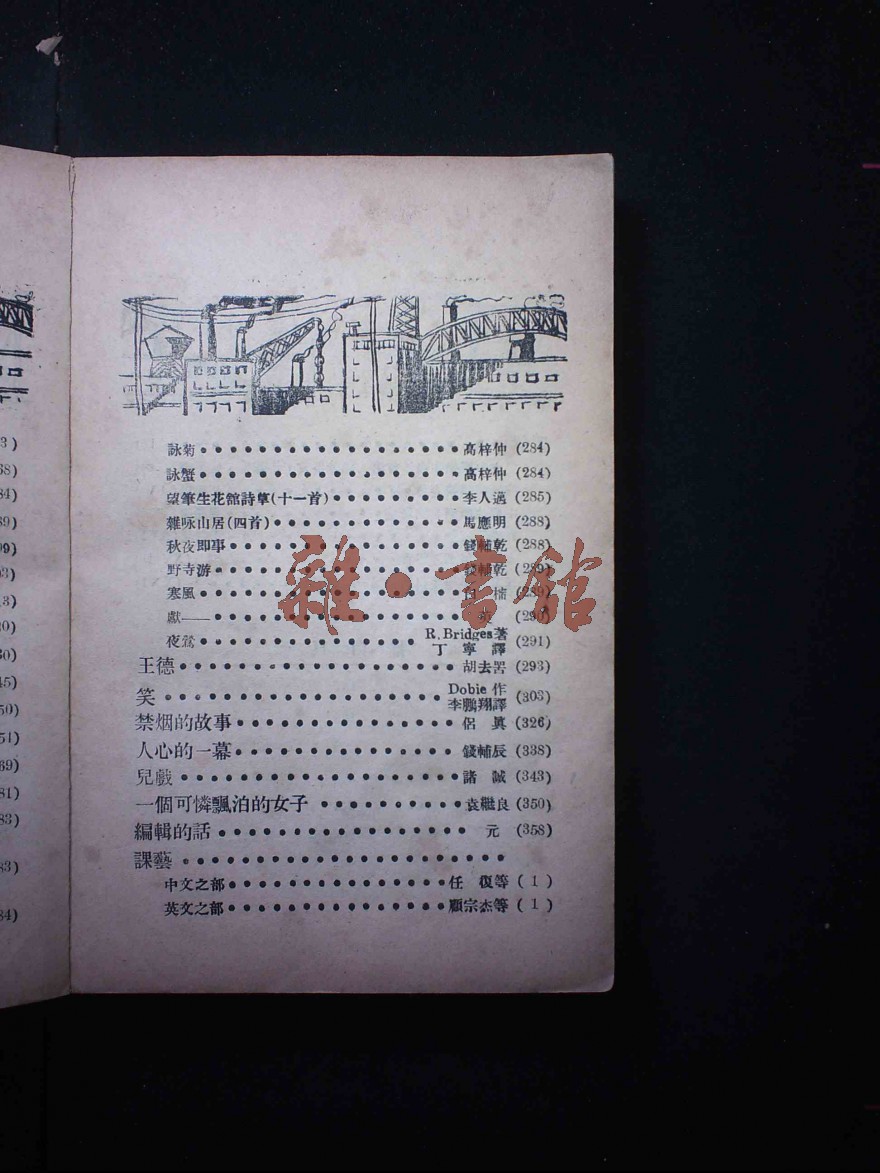 3)
68)
84)
69)
99)
03)
13)
20)
30)
45)
50)
51)
69)
81)
83)
83)
84)
詠菊 高梓仲 (284)
詠蟹 高梓仲 (284)
望筆生花館詩草(十一首) 李人邁 (285)
雜咏山居(四首) 馬應明 (288)
秋夜即事 錢輔乾 (288)
野寺游 錢輔乾 (289)
寒風 (289)
獻——
夜鶯 R. Bridges著 丁寧譯 (291)
王德 胡去罟 (293)
笑 Dobie 作 李鵬翔譯 (303)
禁烟的故事 侶眞 (326)
人心的一幕 錢輔辰 (338)
兒戲 諸誠 (343)
一個可憐飄泊的女子 袁繼良 (350)
編輯的話 元 (358)
課藝
中文之部 任復等 (1)
英文之部 顧宗杰等 (1)
雜·書館